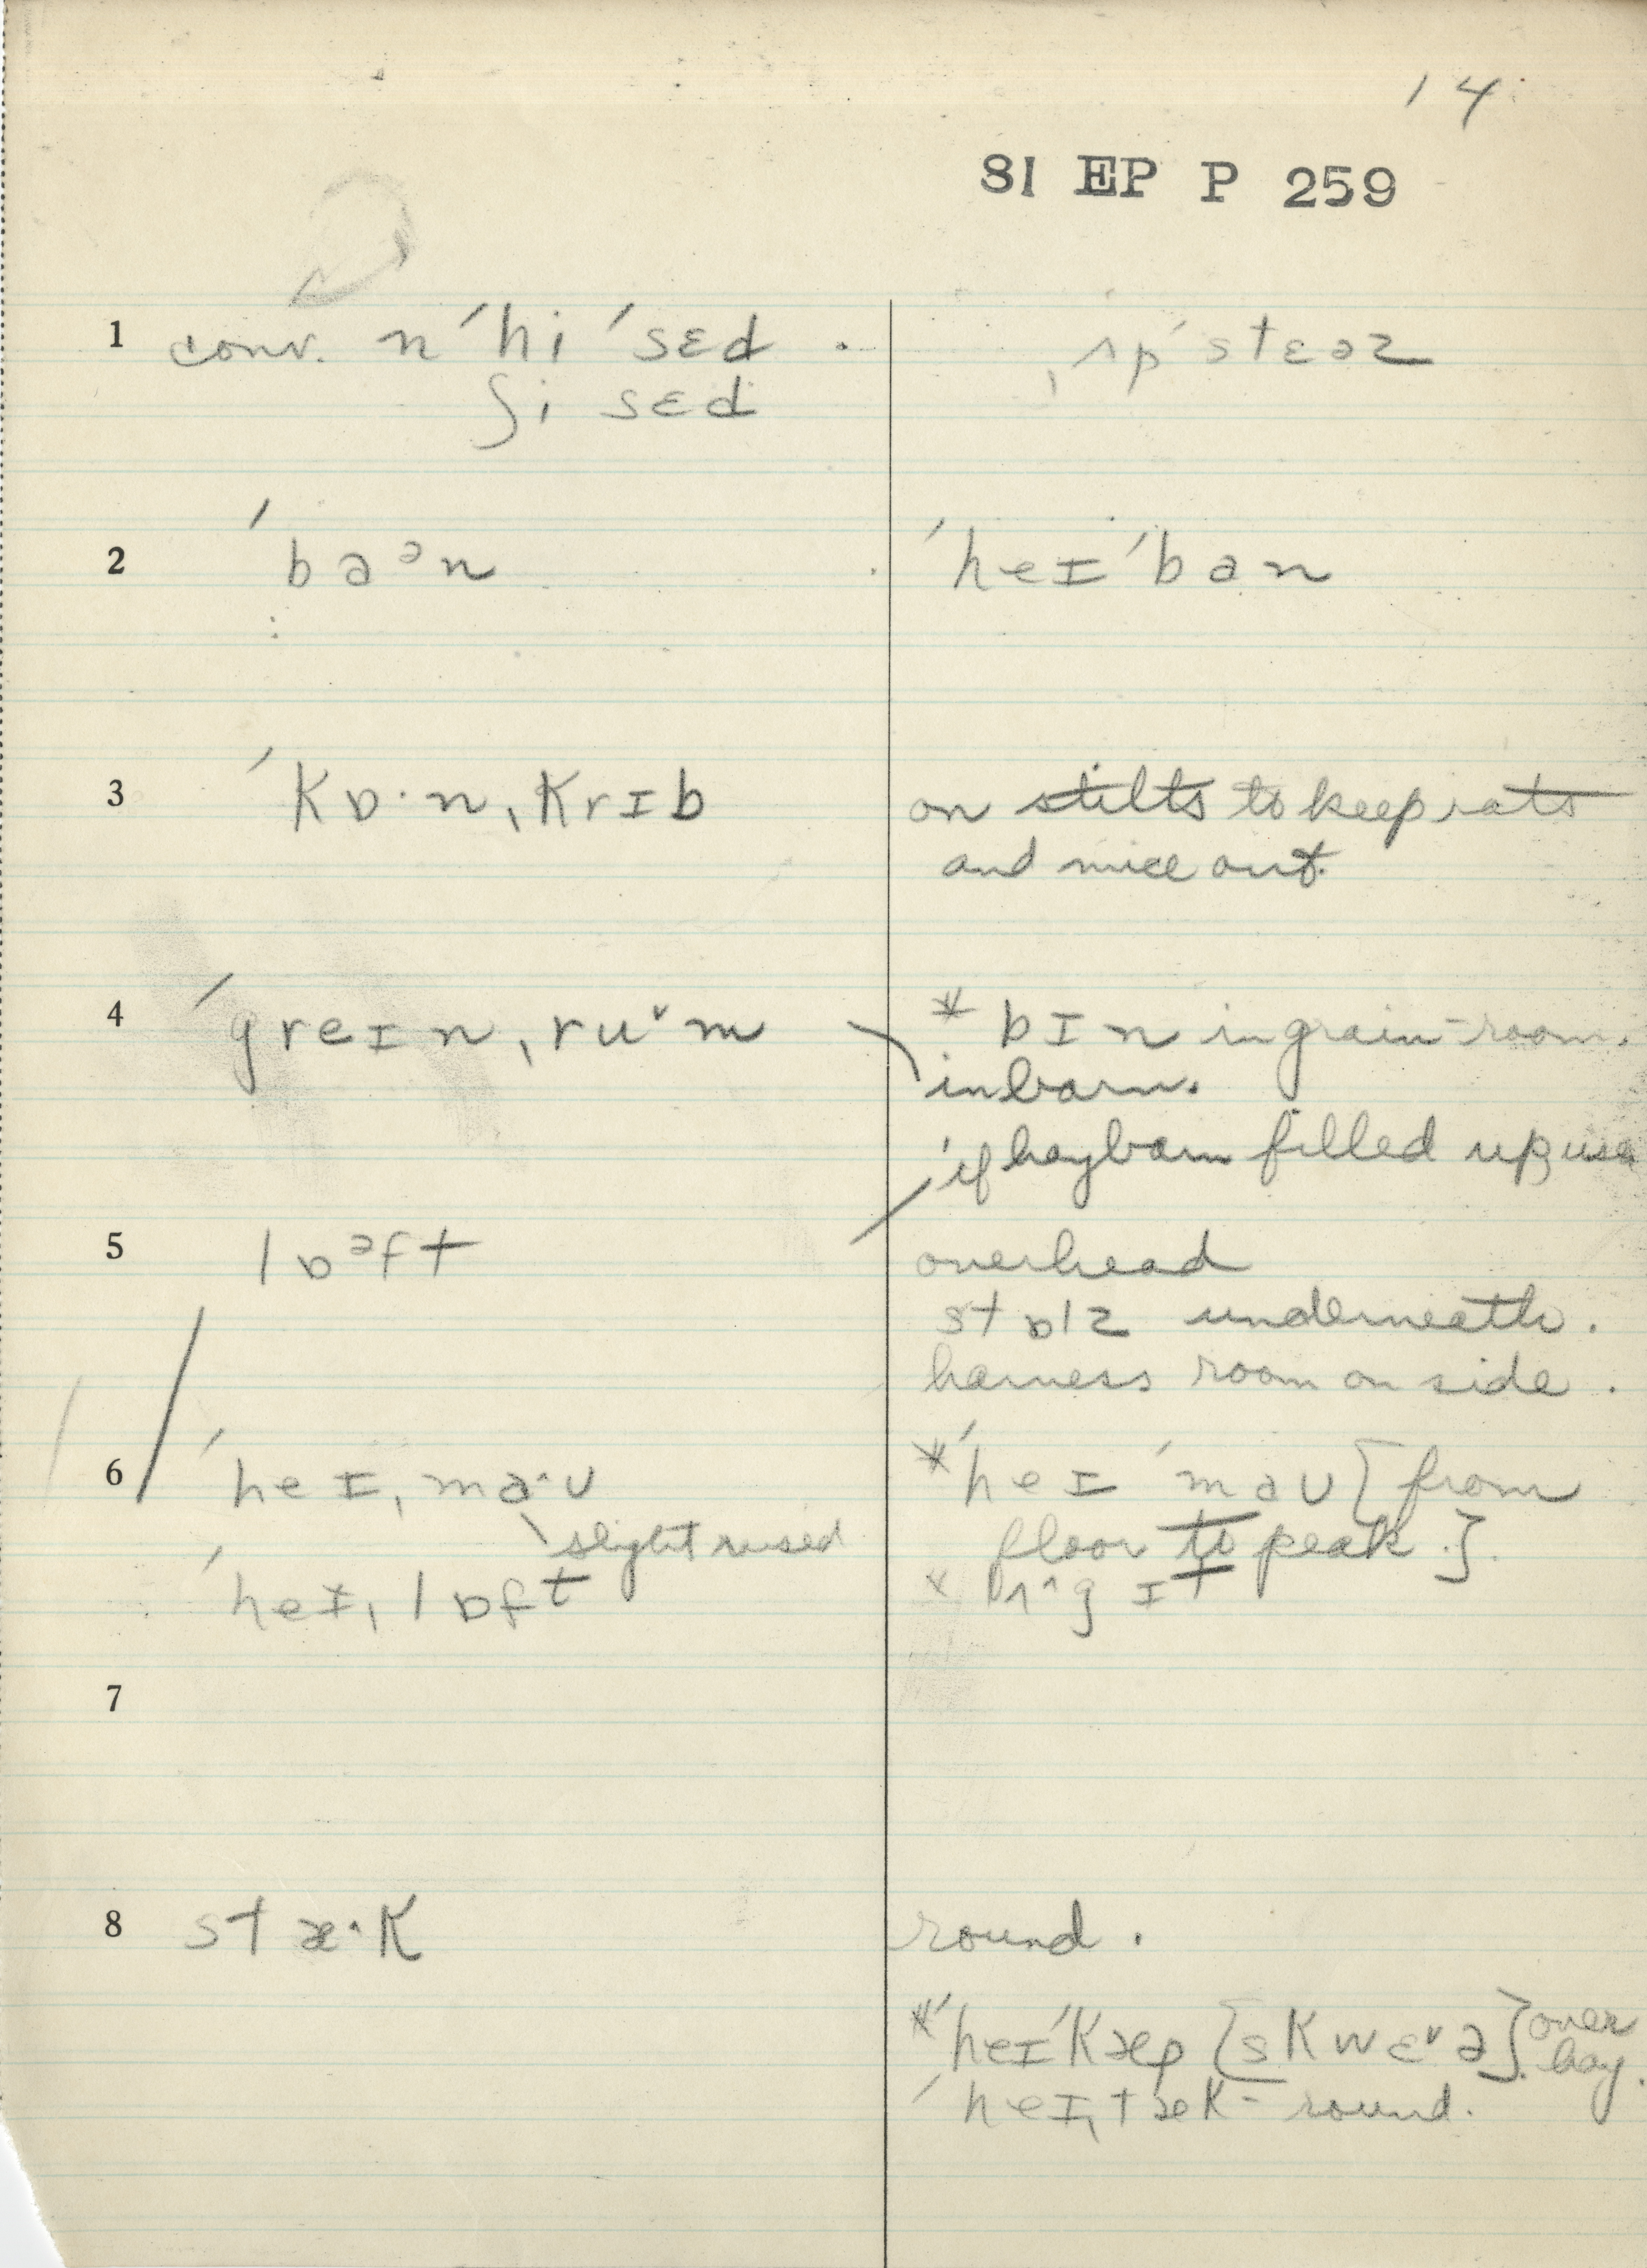 14
81 EP P 259
1 conv. n ˈhi ˈsɛd . ˌʌpˈstɛəz
ʃi sɛd
2 ˈbaᵊn ˈheɪˈban
3 ˈkɒ·nˌkrɪb on stilts to keep rats
and mice out.
4 ˈgreɪnˌruᵛm * bɪn in grain-room.
in barn.
if haybarn filled up, use
5 lɒᵊft overhead
stɒlz underneath.
harness room on side.
6 ˈheɪˌmaˑʊ *ˈheɪˈmaʊ [from
slight raised floor to peak.].
ˈheɪˌlɒft
7
8 stæˑk round.
*ˈheɪˈkæp [skwɛᵛə] over
hay.
ˈheɪˌstæk - round.